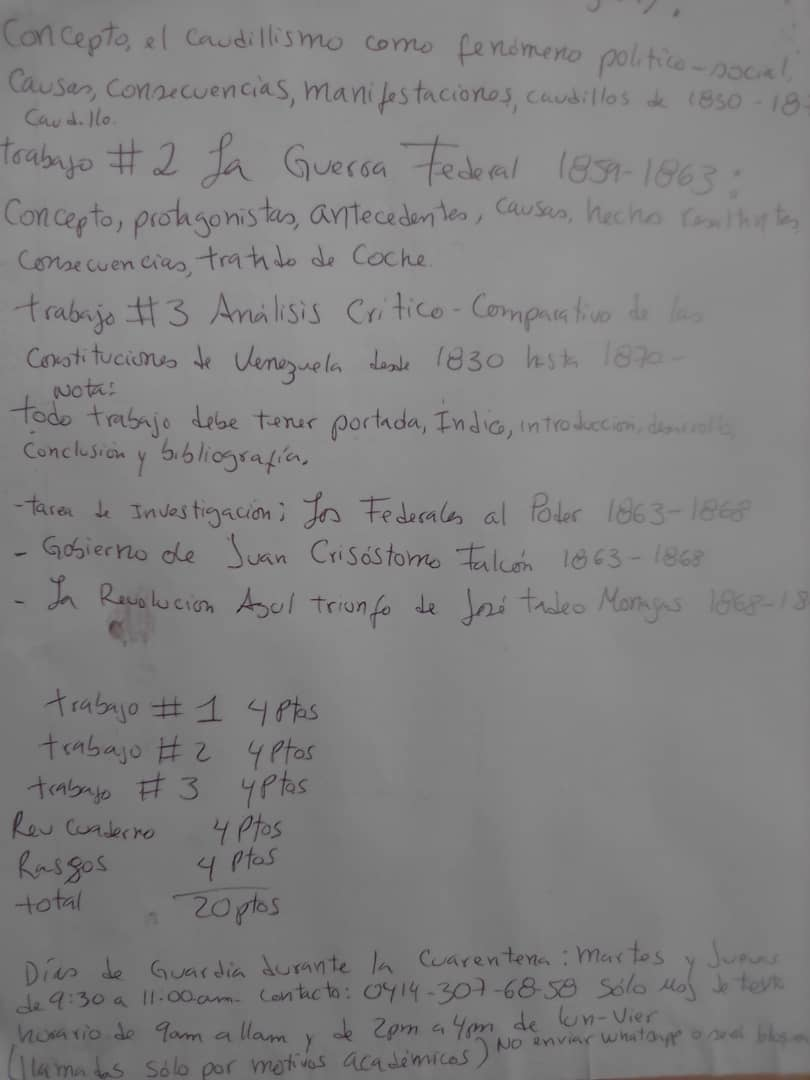 Concepto, el Caudillismo como fenómeno político-social,
Causas, Consecuencias, manifestaciones, caudillos de 1830-18
Caudillo.
trabajo # 2 La Guerra Federal 1859-1863:
Concepto, protagonistas, antecedentes, causas, hecho
Consecuencias, tratado de Coche.
trabajo # 3 Análisis Crítico-Comparativo de las
Constituciones de Venezuela desde 1830 hasta 1870-
Nota:
todo trabajo debe tener portada, Índice, introducción, desarrollo,
Conclusión y bibliografía.
-tarea de Investigación; Los Federales al Poder 1863-1868
- Gobierno de Juan Crisóstomo Falcón 1863-1868
- La Revolución Azul triunfo de José tadeo Monagas 1868-18
trabajo # 1 4 Ptos
trabajo # 2 4 Ptos
trabajo # 3 4 Ptos
Rev Cuaderno 4 Ptos
Rasgos 4 Ptos
total 20 ptos
Días de Guardia durante la Cuarentena: martes y Jueves
de 9:30 a 11:00am. Contacto: 0414-307-68-58 Sólo msj de texto
horario de 9am a 11am y de 2pm a 4pm de lun-Vier
(llamadas sólo por motivos académicos) No enviar whatsapp o